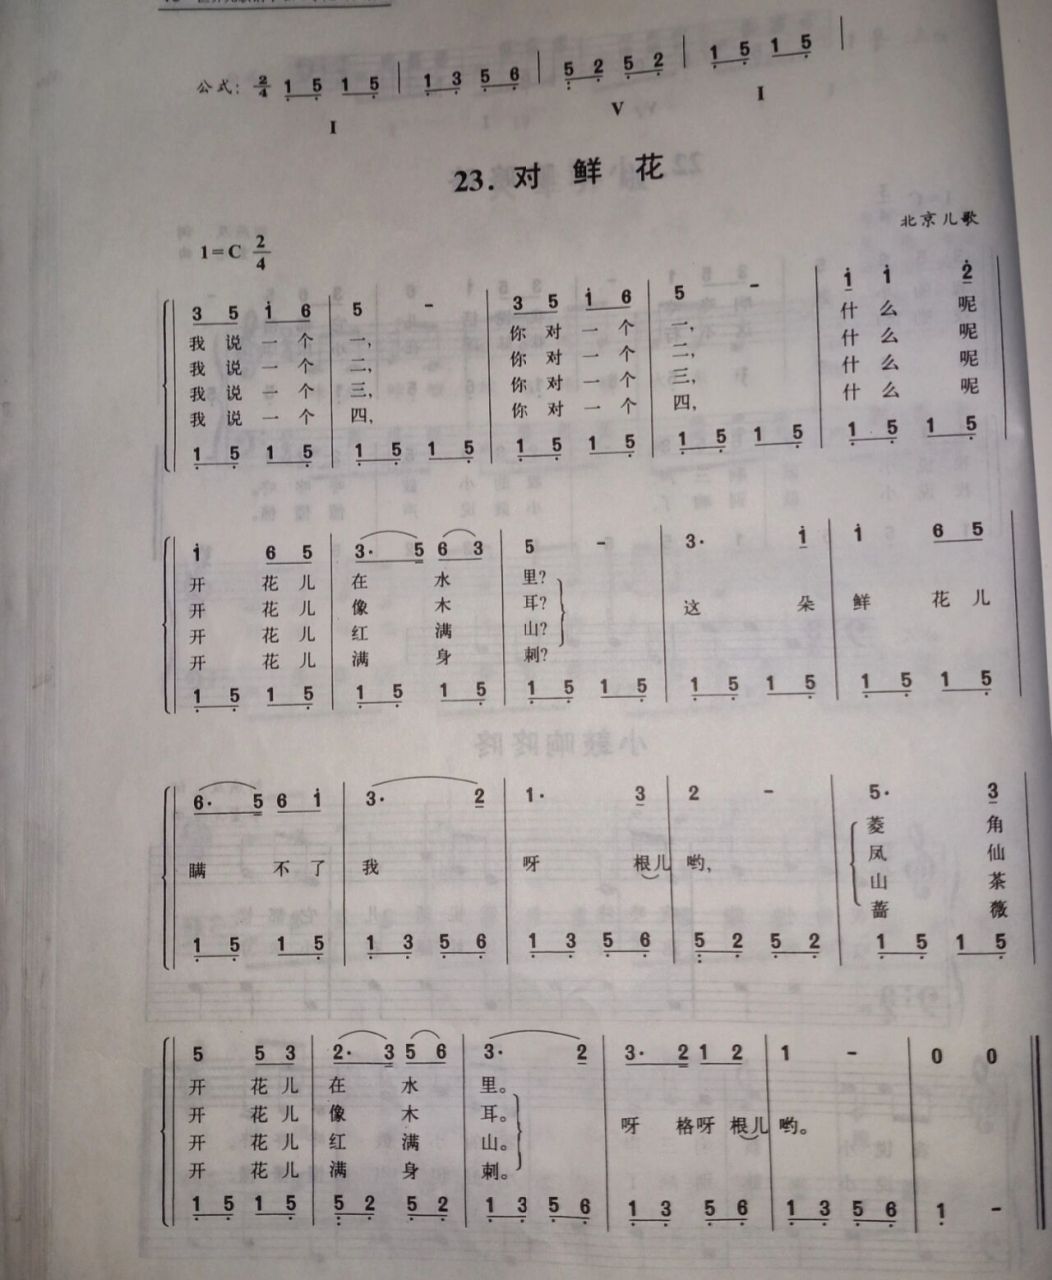 公式: 2/4 1 5 1 5 | 1 3 5 6 | 5 2 5 2 | 1 5 1 5 |
I V I
23. 对 鲜 花
北京儿歌
1=C 2/4
3 5 i 6 | 5 - | 3 5 i 6 | 5 - | i i 2̇
我 说 一 个 一, 你 对 一 个 一, 什 么 呢
我 说 一 个 二, 你 对 一 个 二, 什 么 呢
我 说 一 个 三, 你 对 一 个 三, 什 么 呢
我 说 一 个 四, 你 对 一 个 四, 什 么 呢
1 5 1 5 | 1 5 1 5 | 1 5 1 5 | 1 5 1 5 | 1 5 1 5
i 6 5 | 3· 5 6 3 | 5 - | 3· i | i 6 5
开 花 儿 在 水 里?
开 花 儿 像 木 耳? 这 朵 鲜 花 儿
开 花 儿 红 满 山?
开 花 儿 满 身 刺?
1 5 1 5 | 1 5 1 5 | 1 5 1 5 | 1 5 1 5 | 1 5 1 5
6· 5 6 i | 3· 2 | 1· 3 | 2 - | 5· 3
菱 角
凤 仙
瞒 不 了 我 呀 根儿 哟,
山 茶
蔷 薇
1 5 1 5 | 1 3 5 6 | 1 3 5 6 | 5 2 5 2 | 1 5 1 5
5 5 3 | 2· 3 5 6 | 3· 2 | 3· 2 1 2 | 1 - | 0 0
开 花 儿 在 水 里。
开 花 儿 像 木 耳。 呀 格呀 根儿 哟。
开 花 儿 红 满 山。
开 花 儿 满 身 刺。
1 5 1 5 | 5 2 5 2 | 1 3 5 6 | 1 3 5 6 | 1 3 5 6 | 1 -